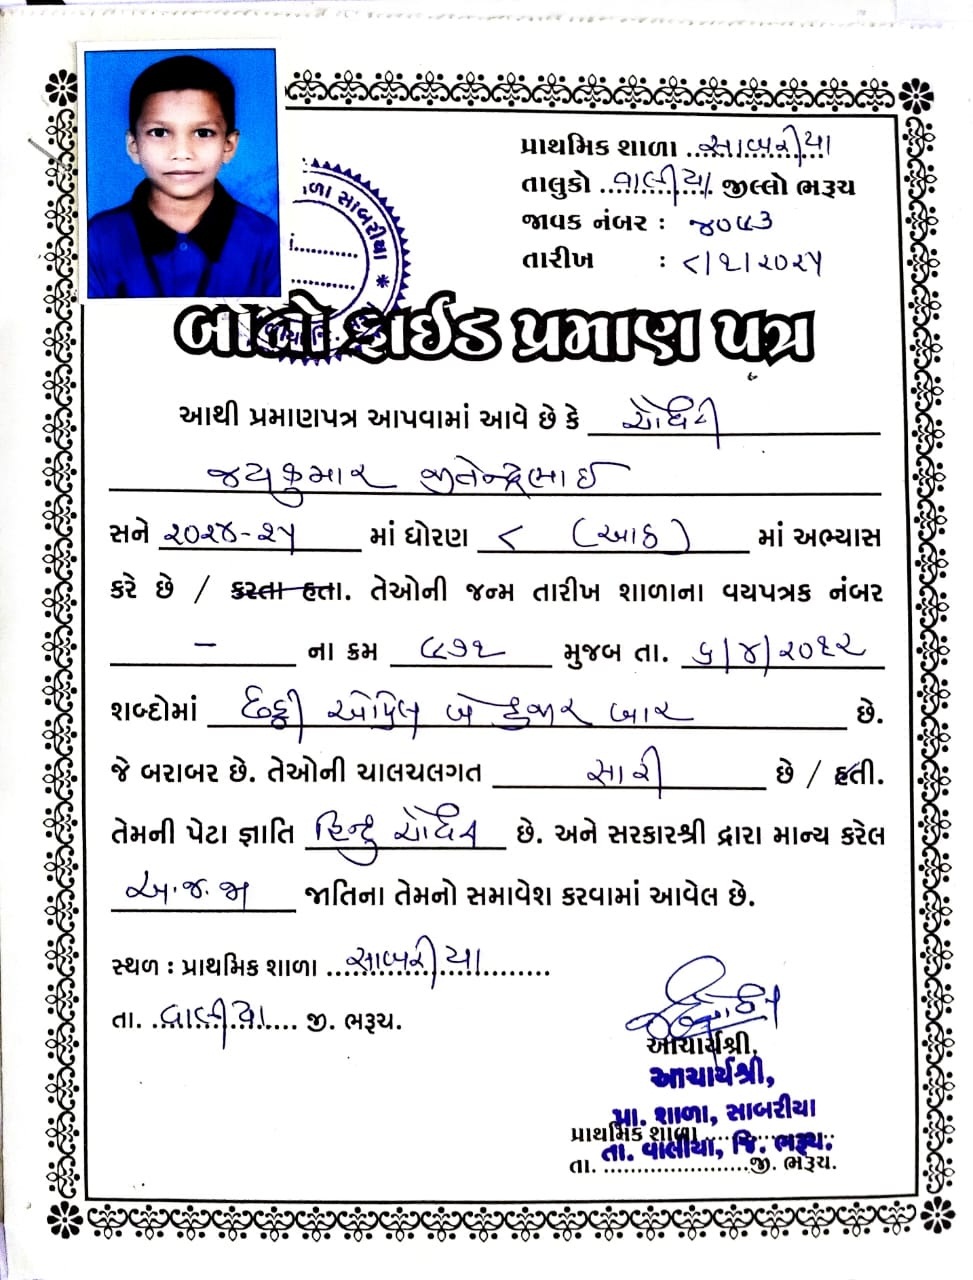 પ્રાથમિક શાળા ..સાબરીયા
તાલુકો ..વાલીયા જીલ્લો ભરૂચ
જાવક નંબર : ૪૦૫૩
તારીખ : ૮/૧/૨૦૨૫
ળા સાબરીયા *
બોનો ફાઈડ પ્રમાણ પત્ર
આથી પ્રમાણપત્ર આપવામાં આવે છે કે ચૌધરી
જયકુમાર જીતેન્દ્રભાઈ
સને ૨૦૨૪-૨૫ માં ધોરણ ૮ (આઠ) માં અભ્યાસ
કરે છે / કરતા હતા. તેઓની જન્મ તારીખ શાળાના વયપત્રક નંબર
- ના ક્રમ મુજબ તા. ૬/૪/૨૦૧૨
શબ્દોમાં છઠ્ઠી એપ્રિલ બે હજાર બાર છે.
જે બરાબર છે. તેઓની ચાલચલગત સારી છે / હતી.
તેમની પેટા જ્ઞાતિ હિન્દુ ચૌધરી છે. અને સરકારશ્રી દ્વારા માન્ય કરેલ
અ.જ.જા જાતિના તેમનો સમાવેશ કરવામાં આવેલ છે.
સ્થળ : પ્રાથમિક શાળા ..સાબરીયા
તા. વાલીયા જી. ભરૂચ.
આચાર્યશ્રી.
આચાર્યશ્રી,
પ્રા. શાળા, સાબરીયા
પ્રાથમિક શાળા
તા. વાલીયા, જિ. ભરૂચ.
તા. ........................જી. ભરૂચ.